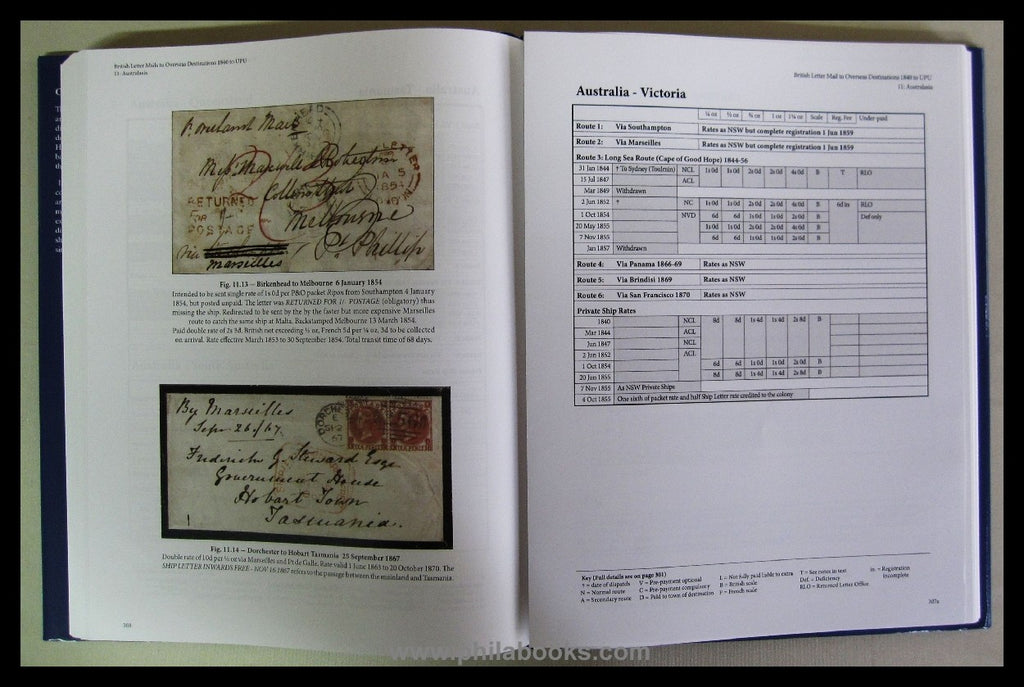 British Letter Mails to Overseas Destinations 1840 to UPU
11: Australasia
P. Overland Mail
Miss
Collins Street
RETURNED
FOR 1/-
POSTAGE
Melbourne
Pt. Phillip
via
Marseilles
Fig. 11.13 – Birkenhead to Melbourne 6 January 1854
Intended to be sent single rate of 1s 0d per P&O packet Ripon from Southampton 4 January
1854, but posted unpaid. The letter was RETURNED FOR 1/- POSTAGE (obligatory) thus
missing the ship. Redirected to be sent by the by the faster but more expensive Marseilles
route to catch the same ship at Malta. Backstamped Melbourne 13 March 1854.
Paid double rate of 2s 8d, British net exceeding ½ oz, French 5d per ¼ oz, 3d to be collected
on arrival. Rate effective March 1853 to 30 September 1854. Total transit time of 68 days.
By Marseilles
Sepr. 26/67
Frederick G. Steward Esqe
Government House
Hobart Town
Tasmania.
Fig. 11.14 – Dorchester to Hobart Tasmania 25 September 1867
Double rate of 10d per ½ oz via Marseilles and Pt de Galle. Rate valid 1 June 1863 to 20 October 1870. The
SHIP LETTER INWARDS FREE - NOV 16 1867 refers to the passage between the mainland and Tasmania
British Letter Mail to Overseas Destinations 1840 to UPU
11: Australasia
Australia - Victoria
¼ oz ½ oz ¾ oz 1 oz 1¼ oz Scale Reg. Fee Under paid
Route 1: Via Southampton Rates as NSW but complete registration 1 Jun 1859
Route 2: Via Marseilles Rates as NSW but complete registration 1 Jun 1859
Route 3: Long Sea Route (Cape of Good Hope) 1844-56
31 Jan 1844 † To Sydney (Toulmin) NCL 1s 0d 1s 0d 2s 0d 2s 0d 4s 0d B T RLO
15 Jul 1847 ACL
Mar 1849 Withdrawn
2 Jun 1852 † NC 1s 0d 1s 0d 2s 0d 2s 0d 4s 0d B 6d in RLO
1 Oct 1854 NVD 6d 6d 1s 0d 1s 0d 2s 0d B Def only
20 May 1855 1s 0d 1s 0d 2s 0d 2s 0d 4s 0d B
7 Nov 1855 6d 6d 1s 0d 1s 0d 2s 0d B
Jan 1857 Withdrawn
Route 4: Via Panama 1866-69 Rates as NSW
Route 5: Via Brindisi 1869 Rates as NSW
Route 6: Via San Francisco 1870 Rates as NSW
Private Ship Rates
1840 NCL 8d 8d 1s 4d 1s 4d 2s 8d B
Mar 1844 ACL
Jun 1847 NCL
2 Jun 1852 ACL
1 Oct 1854 6d 6d 1s 0d 1s 0d 2s 0d B
20 Jun 1855 8d 8d 1s 4d 1s 4d 2s 8d B
7 Nov 1855 As NSW Private Ships
4 Oct 1855 One sixth of packet rate and half Ship Letter rate credited to the colony
Key (Full details see on page 301)
† = date of dispatch V = Pre-payment optional L = Not fully paid liable to extra T = See notes in text in = Registration
N = Normal route C = Pre-payment compulsory B = British scale Def. = Deficiency incomplete
A = Secondary route D = Paid to town of destination F = French scale RLO = Returned Letter Office
307a
www.philabooks.com